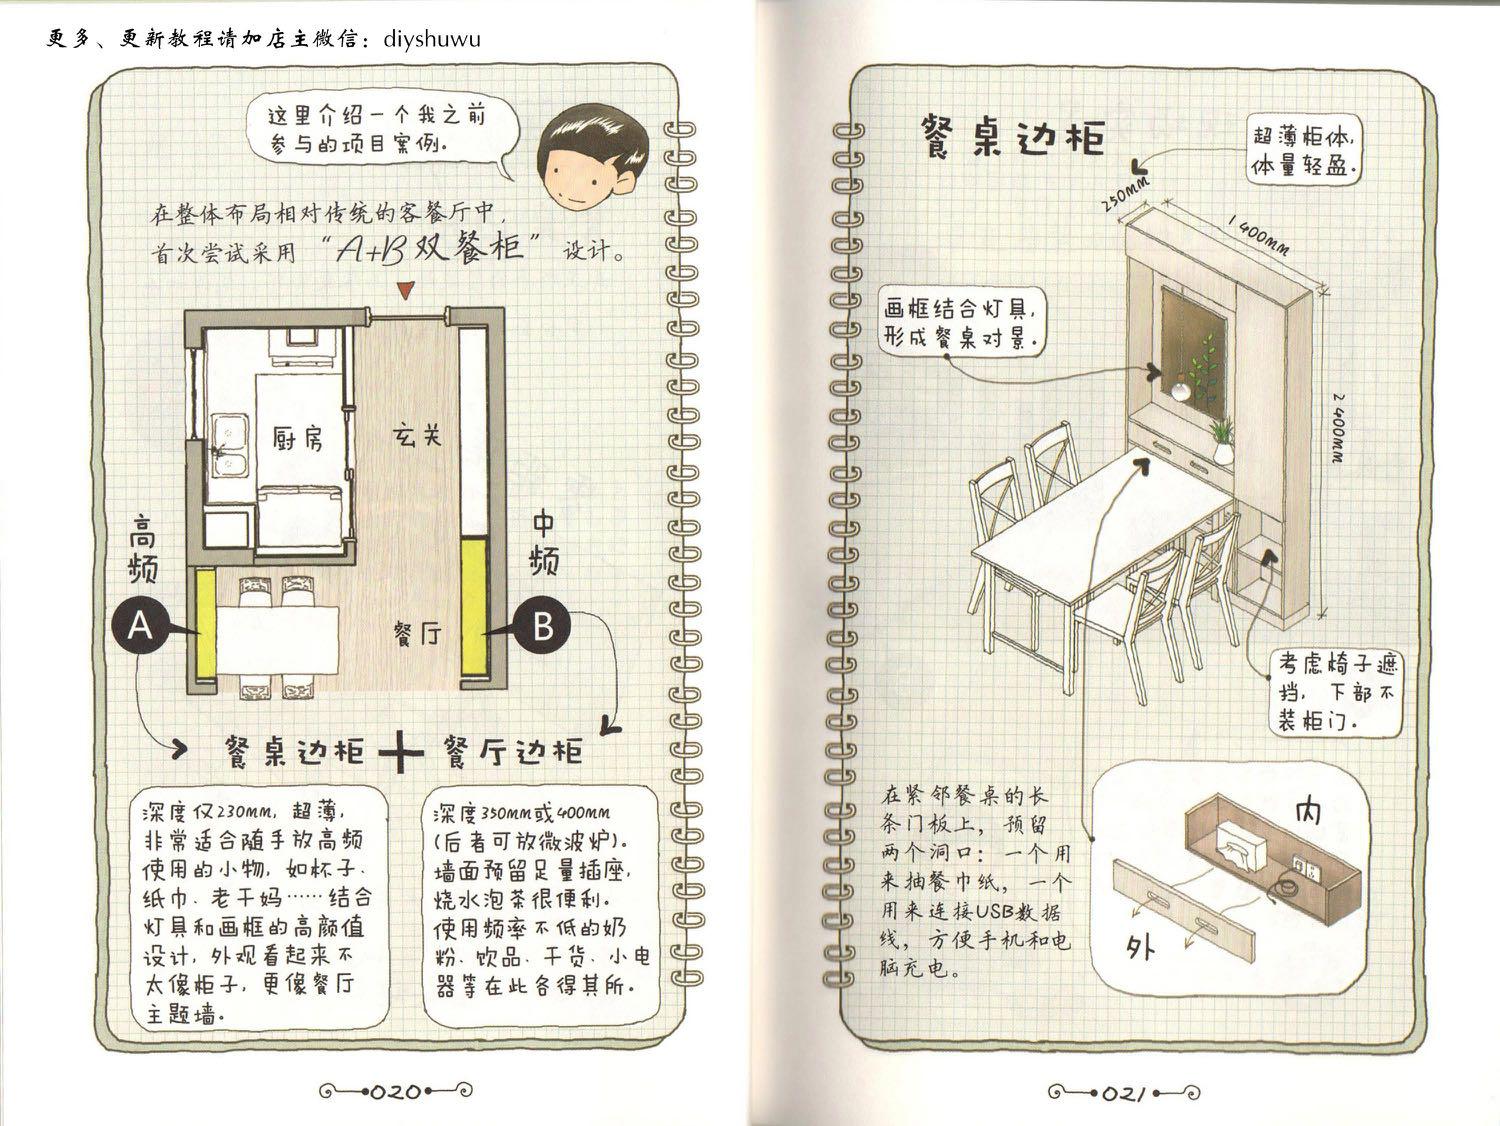 更多、更新教程请加店主微信：diyshuwu
这里介绍一个我之前
参与的项目案例.
在整体布局相对传统的客餐厅中，
首次尝试采用 “A+B双餐柜” 设计。
厨房
玄关
高频
中频
A
餐厅
B
餐桌边柜+餐厅边柜
深度仅230mm，超薄，
非常适合随手放高频
使用的小物，如杯子、
纸巾、老干妈……结合
灯具和画框的高颜值
设计，外观看起来不
太像柜子，更像餐厅
主题墙.
深度350mm或400mm
(后者可放微波炉)。
墙面预留足量插座，
烧水泡茶很便利.
使用频率不低的奶
粉、饮品、干货、小电
器等在此各得其所.
020
餐桌边柜
超薄柜体，
体量轻盈.
250mm
1400mm
画框结合灯具，
形成餐桌对景.
2400mm
考虑椅子遮
挡，下部不
装柜门.
在紧邻餐桌的长
条门板上，预留
两个洞口：一个用
来抽餐巾纸，一个
用来连接USB数据
线，方便手机和电
脑充电。
内
外
021